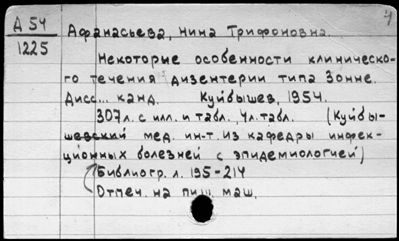 4
Д 54
1225
Афанасьева, Нина Трифоновна.
Некоторые особенности клиническо-
го течения дизентерии типа Зонне.
Дисс... канд. Куйбышев, 1954.
307 л. с илл. и табл., 4 л. табл. (Куйбы-
шевский мед. ин-т. Из кафедры инфек-
ционных болезней с эпидемиологией)
Библиогр. л. 195-214
Отпеч. на пиш. маш.